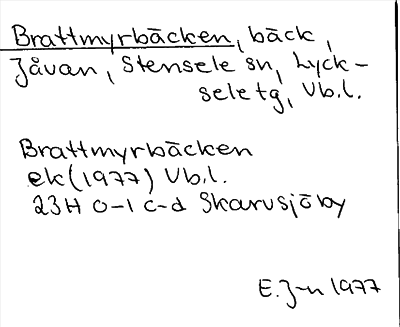 Brattmyrbäcken, bäck,
Jåvan, Stensele sn, Lyck-
sele tg, Vb.l.
Brattmyrbäcken
ek (1977) Vb.l.
23H 0-1 c-d Skarvsjöby
E. J-n 1977